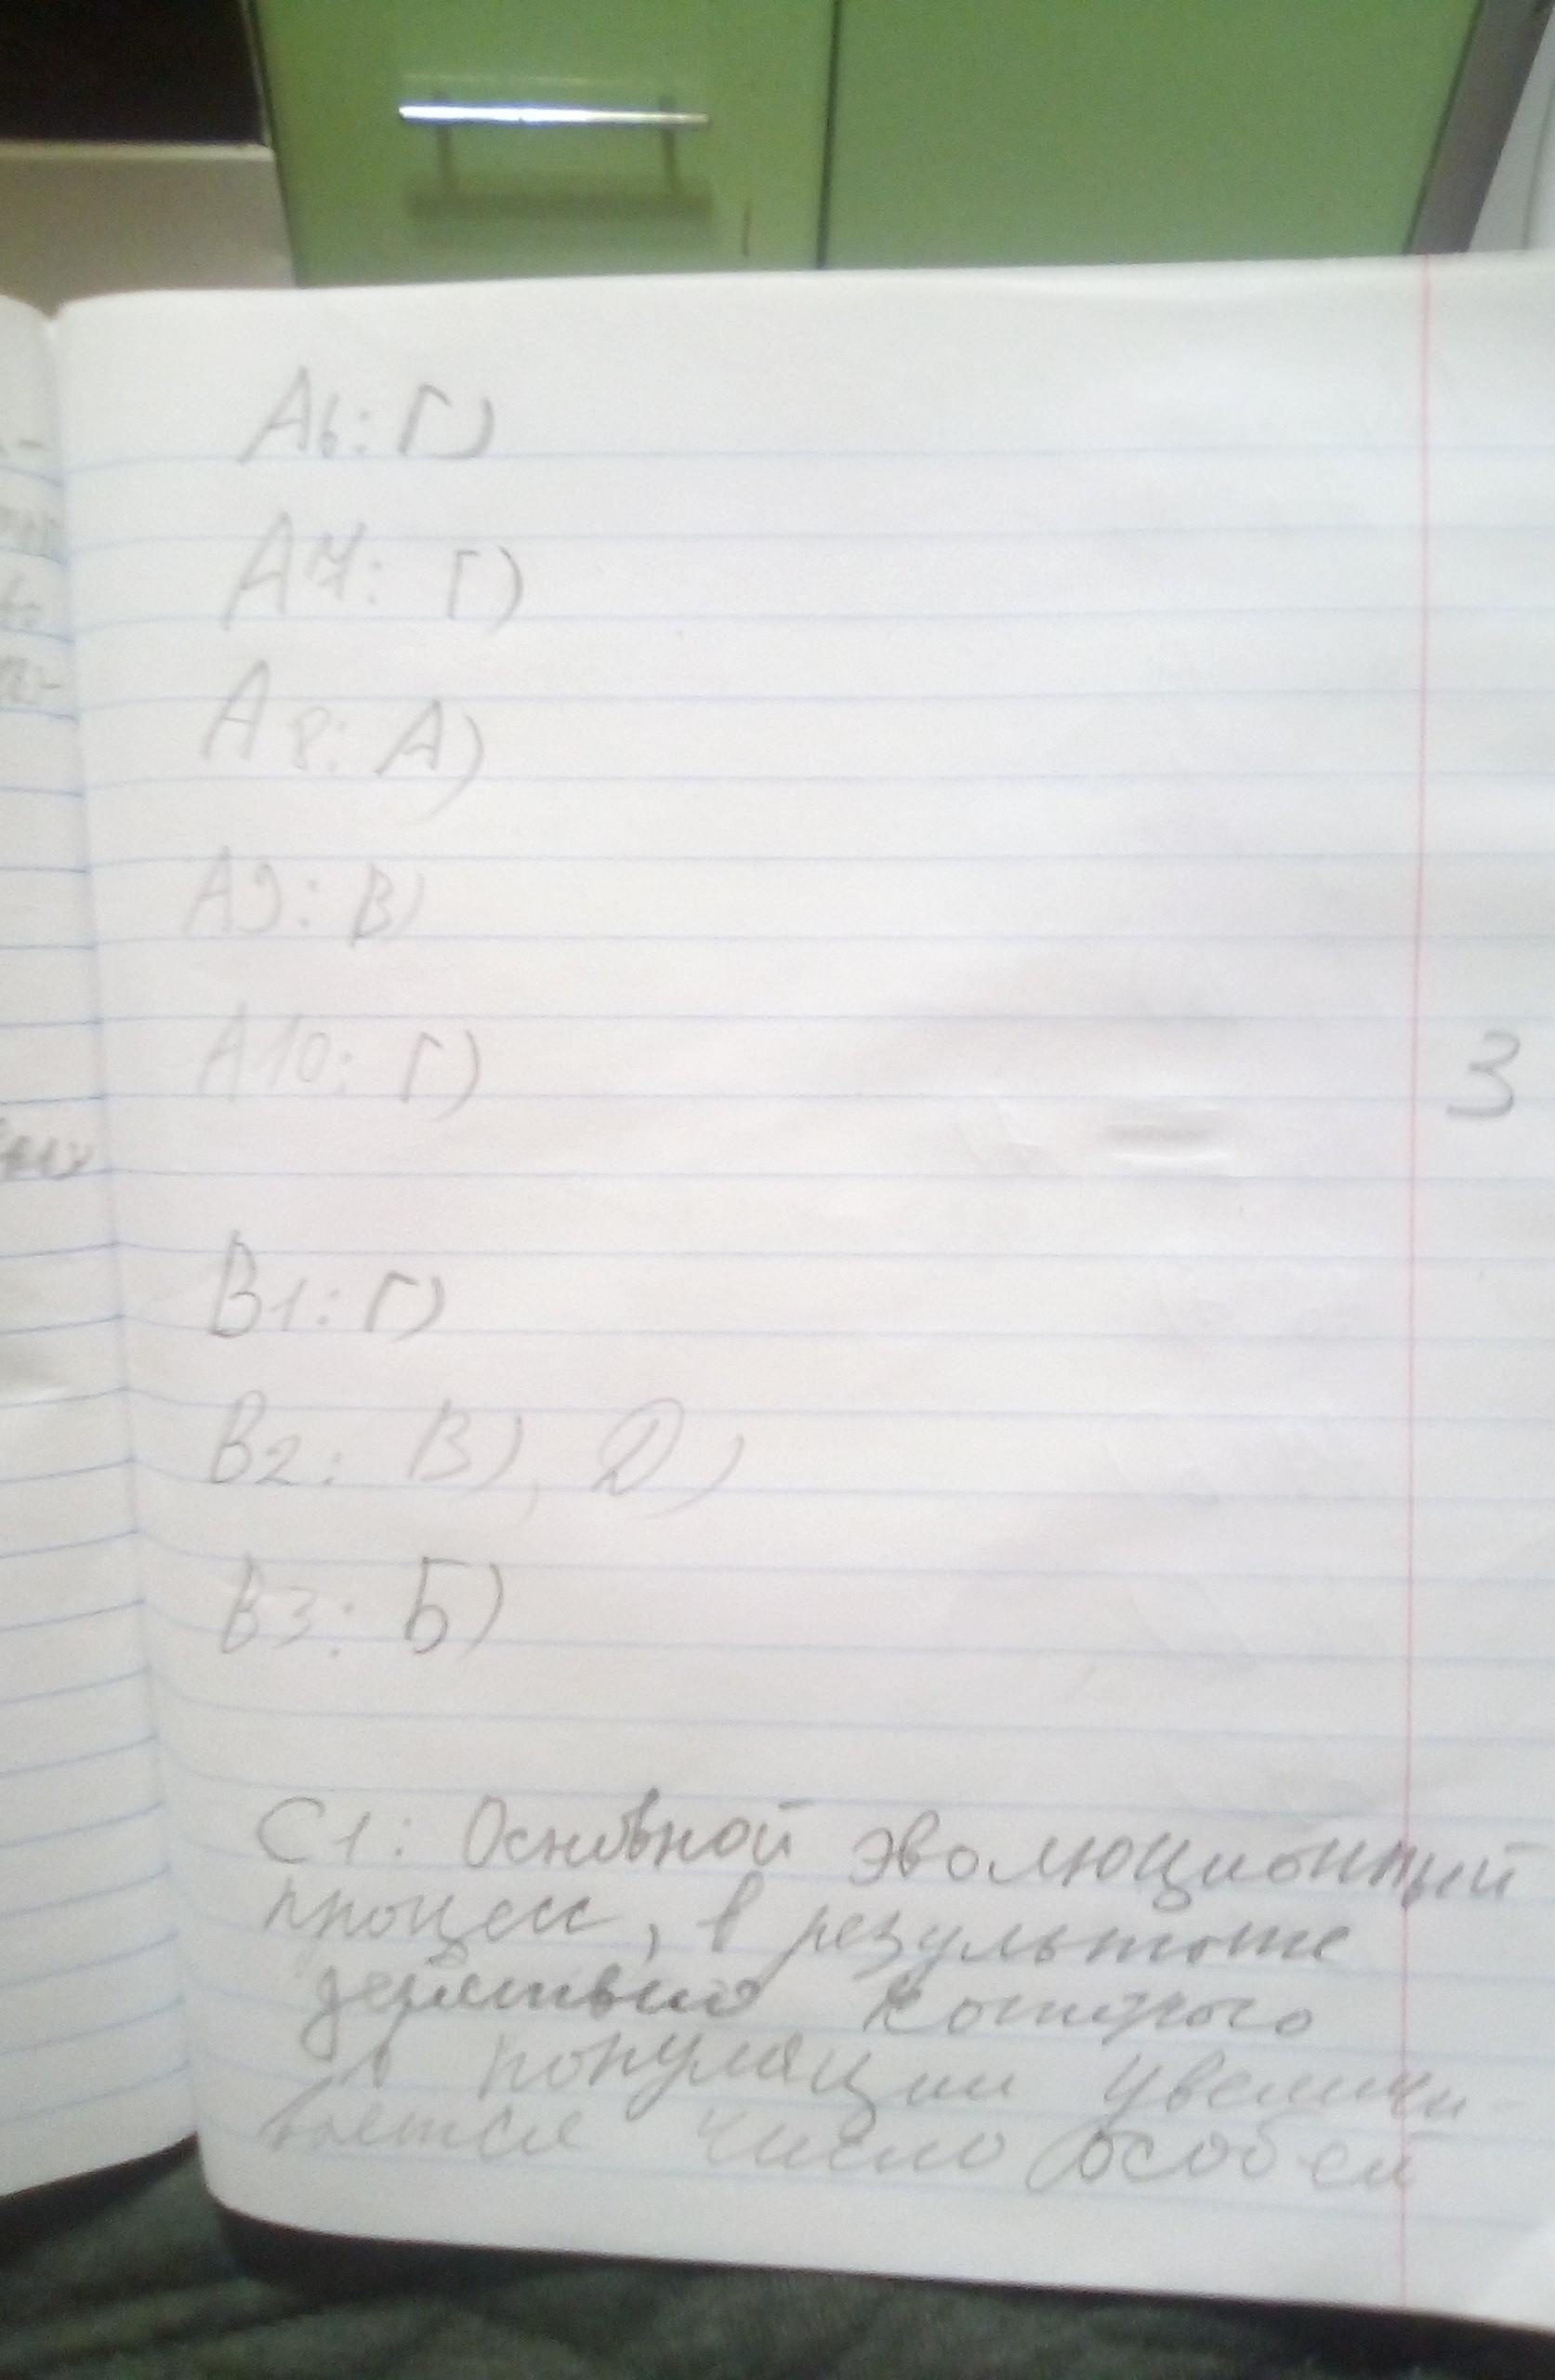 А6: Г)
А7: Г)
А8: А)
А9: В)
А10: Г)
3
В1: Г)
В2: В), Д)
В3: Б)
С1: Основной эволюционный
процесс, в результате
действия которого
в популяции увеличи-
вается число особей